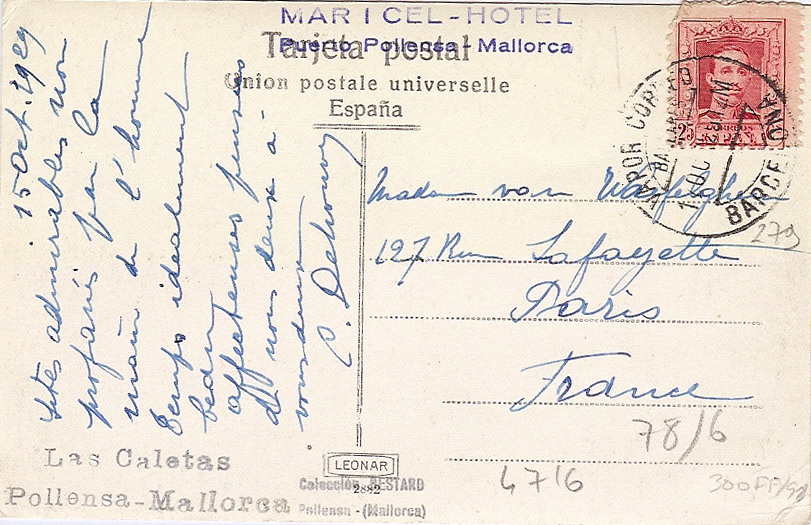 MAR I CEL-HOTEL
Puerto Pollensa - Mallorca
Tarjeta postal
Union postale universelle
España
15 Oct. 1929
sites admirables non
profanés par la
main de l'homme
temps idealement
beau
affectueuses pensées
de nous deux à
vous deux
C.
Las Caletas
Pollensa-Mallorca
LEONAR
2882
Colección BESTARD
Pollensa - (Mallorca)
25
CORREOS
VAPOR CORREO
BARCELONA
Madame van
127 Rue Lafayette
Paris
France
279
78/6
47'6
300FF/